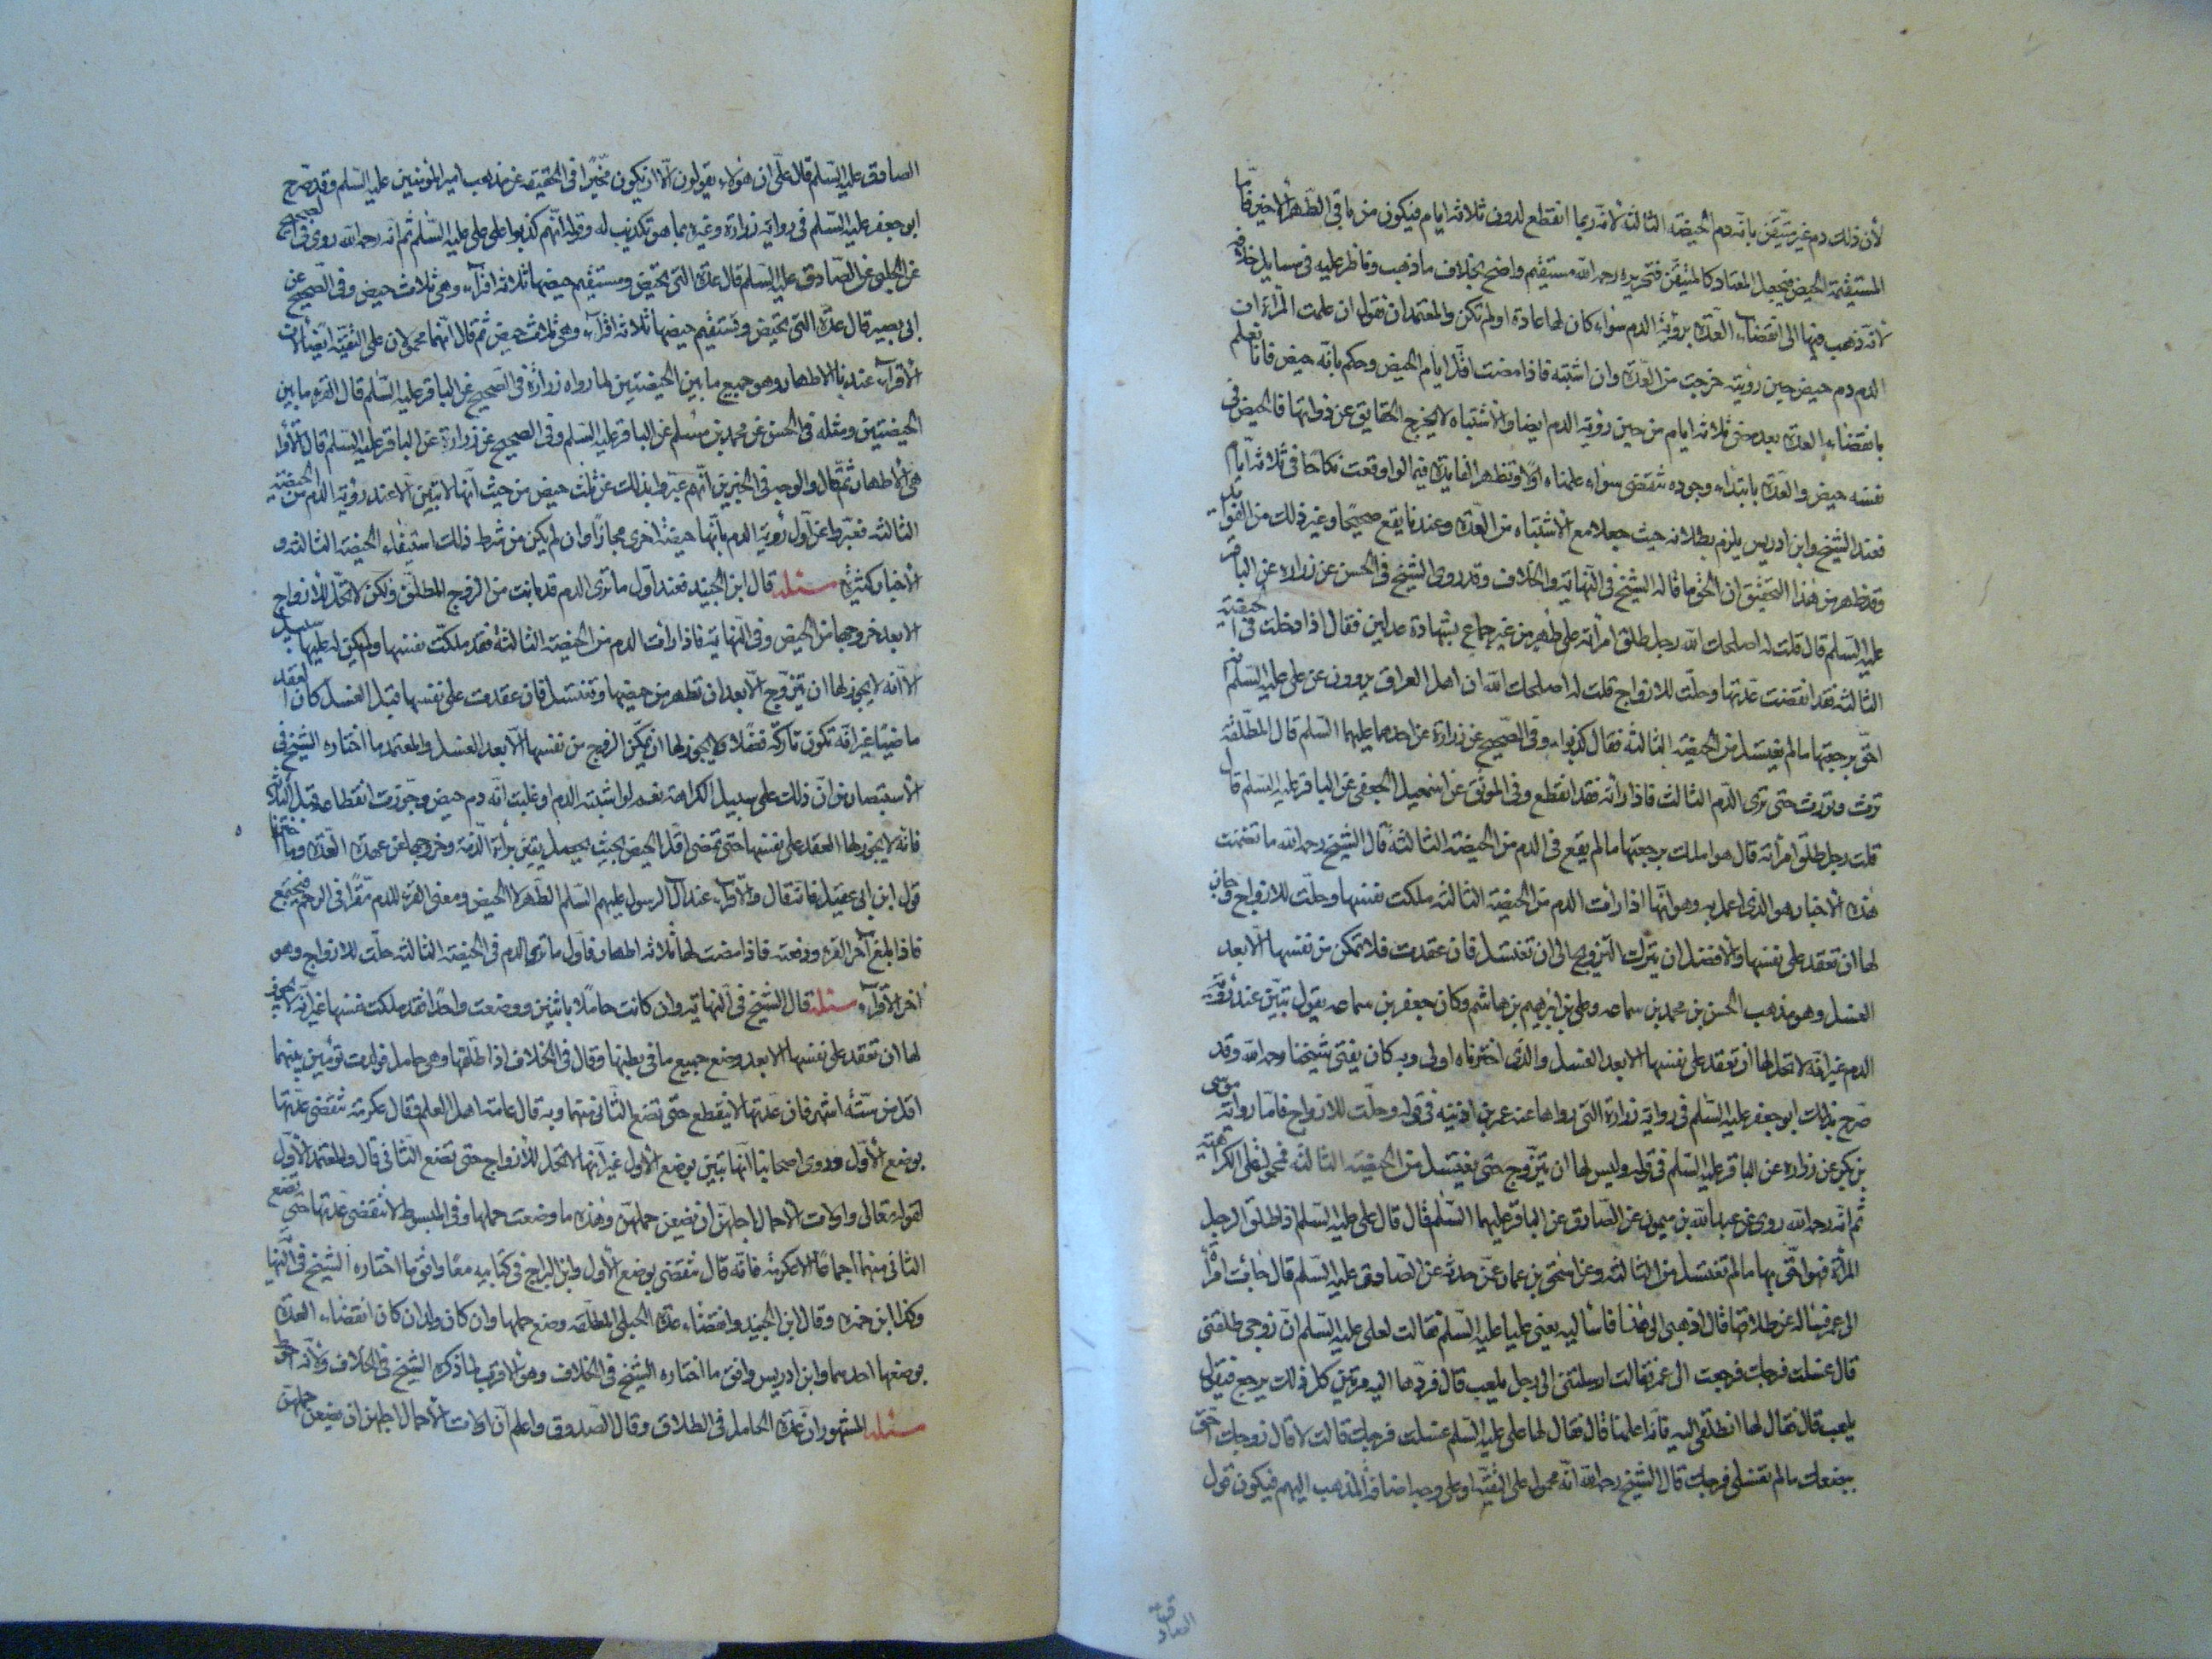 لأن ذلك دم غير متيقن بانه دم الحيضة الثالثة لانه ربما انقطع لدون ثلاثة ايام فيكون من باقي الطهر الاخير فاما
المستقيمة الحيض فيجعل المعتاد كالمتيقن فتحريره رحمه الله مستقيم واضح بخلاف ما ذهب وناظر عليه في مسايل خلافه
لانه ذهب فيها الى انقضاء العدة برؤية الدم سواء كان لها عادة او لم تكن والمعتمد ان نقول ان علمت المرأة ان
الدم دم حيض حين رؤيته خرجت من العدة وان اشتبه فاذا مضت اقل ايام الحيض وحكم بانه حيض فانا نعلم
بانقضاء العدة بعد مضى ثلاثة ايام من حين رؤية الدم ايضا والاشتباه لا يخرج الحقايق عن ذواتها فالحيض في
نفسه حيض والعدة بابتداء وجوده تنقضى سواء علمناه اولا وتظهر الفايدة فيما لو اوقعت نكاحا في ثلاثة ايام
فعند الشيخ وابن ادريس يلزم بطلانه حيث جعلا مع الاشتباه من العدة وعندنا يقع صحيحا وغير ذلك من الفوائد
وقد ظهر من هذا التحقيق ان الحق ما قاله الشيخ في النهاية والخلاف وقد روى الشيخ في الحسن عن زرارة عن الباقر
عليه السلم قال قلت له اصلحك الله رجل طلق امرأته على طهر من غير جماع بشهادة عدلين فقال اذا دخلت في الحيضة
الثالثة فقد انقضت عدتها وحلت للازواج قلت له اصلحك الله ان اهل العراق يروون عن على عليه السلم انه
احق برجعتها ما لم تغتسل من الحيضة الثالثة فقال كذبوا وفي الصحيح عن زرارة عن احدهما عليهما السلم قال المطلقة
ترث وتورث حتى ترى الدم الثالث فاذا رأته فقد انقطع وفي الموثق عن اسمعيل الجعفى عن الباقر عليه السلم قال
قلت رجل طلق امرأته قال هو املك برجعتها ما لم يقع في الدم من الحيضة الثالثة قال الشيخ رحمه الله ما تضمنت
هذه الاخبار هو الذى اعمل به وهو انها اذا رأت الدم من الحيضة الثالثة ملكت نفسها وحلت للازواج وجاز
لها ان تعقد على نفسها والافضل ان تترك التزويج الى ان تغتسل فان عقدت فلا تمكن من نفسها الا بعد
الغسل وهو مذهب الحسن بن محمد بن سماعه وعلى بن ابرهيم بن هاشم وكان جعفر بن سماعه يقول تبين عند رؤية
الدم غير انه لا تحل لها ان تعقد على نفسها الا بعد الغسل والذى اخترناه اولى وبه كان يفتى شيخنا رحمه الله وقد
صرح بذلك ابو جعفر عليه السلم في رواية زرارة التى رواها عنه عمر بن اذينه في قوله وحلت للازواج فاما رواية موسى
بن بكر عن زرارة عن الباقر عليه السلم في قوله وليس لها ان تتزوج حتى تغتسل من الحيضة الثالثة فمحمول على الكراهية
ثم انه رحمه الله روى عن عبد الله بن ميمون عن الصادق عن الباقر عليهما السلم قال قال على عليه السلم اذا طلق الرجل
المرأة فهو احق بها ما لم تغتسل من الثالثة وعن اسحق بن عمار عمن حدثه عن الصادق عليه السلم قال جائت امرأة
الى عمر فسأله عن طلاقها قال اذهبى الى هذا فاسأليه يعنى عليا عليه السلم فقالت لعلى عليه السلم ان زوجى طلقنى
قال غسلت فرجك فرجعت الى عمر فقالت ارسلتنى الى رجل يلعب قال فردها اليه مرتين كل ذلك يرجع فتقول
يلعب قال فقال لها انطلقى اليه فانه اعلمنا قال فقال لها على عليه السلم غسلت فرجك قالت لا قال زوجك احق
ببضعك ما لم تغسلى فرجك قال الشيخ رحمه الله انه محمول على التقية او على وجه اضافة المذهب اليهم فيكون قول
الصادق عليه السلم قال على ان هولاء يقولون لا ان يكون مخبرا في الحقيقه عن مذهب امير المؤمنين عليه السلم وقد صرح
ابو جعفر عليه السلم في رواية زرارة وغيره بما هو تكذيب له وقوله انهم كذبوا على على عليه السلم ثم انه رحمه الله روى في الصحيح
عن الحلبى عن الصادق عليه السلم قال عدة التى تحيض ويستقيم حيضها ثلاثة اقراء وهى ثلاث حيض وفي الصحيح عن
ابى بصير قال عدة التى تحيض وتستقيم حيضها ثلاثة اقراء وهى ثلاث حيض ثم قال انهما محمولان على التقية ايضا لان
الاقراء عندنا الاطهار وهو جميع ما بين الحيضتين لما رواه زرارة في الصحيح عن الباقر عليه السلم قال القرء ما بين
الحيضتين ومثله في الحسن عن محمد بن مسلم عن الباقر عليه السلم وفي الصحيح عن زرارة عن الباقر عليه السلم قال الاقراء
هى الاطهار ثم قال والوجه في الخبرين انهم عبروا بذلك عن ثلث حيض من حيث انها لا تبين الا عند رؤية الدم من الحيضة
الثالثة فعبر عن اول رؤية الدم بانها حيضة اخرى مجازا وان لم يكن من شرط ذلك استيفاء الحيضة الثالثة و
الاخبار كثيرة مسئله قال ابن الجنيد فعند اول ما ترى الدم قد بانت من الزوج المطلق ولكن لا تحل للازواج
الا بعد خروجها من الحيض وفي النهاية فاذا رأت الدم من الحيضة الثالثة فقد ملكت نفسها ولم يكن له عليها سبيل
الا انه لا يجوز لها ان تتزوج الا بعد ان تطهر من حيضها وتغتسل فان عقدت على نفسها قبل الغسل كان العقد
ماضيا غير انه تكون تاركة فضلا ولا يجوز لها ان تمكن الزوج من نفسها الا بعد الغسل والمعتمد ما اختاره الشيخ في
الاستبصار من ان ذلك على سبيل الكراهة نعم لو اشتبه الدم او غلبت انه دم حيض وجوزت انقطاعه قبل الثلاثة
فانه لا يجوز لها العقد على نفسها حتى تمضى اقل الحيض بحيث يحصل يقين براءة الذمة وخروجها عن عهدة العدة وما اخترناه
قول ابن ابى عقيل فانه قال والاقراء عند آل الرسول عليهم السلم الطهر لا الحيض ومعنى القرء للدم مقرا في الرحم فيجتمع
فاذا بلغ آخر القرء ودفعته فاذا مضت لها ثلاثة اطهار فاول ما ترى الدم في الحيضة الثالثة حلت للازواج وهو
اخر الاقراء مسئله قال الشيخ في النهاية وان كانت حاملا باثنين ووضعت واحدا فقد ملكت نفسها غير انه لا يجوز
لها ان تعقد على نفسها الا بعد وضع جميع ما في بطنها وقال في الخلاف اذا طلقها وهى حامل فولدت توأمين بينهما
اقل من ستة اشهر فان عدتها لا تنقطع حتى تضع الثانى منهما وبه قال عامة اهل العلم وقال عكرمة تنقضى عدتها
بوضع الاول وروى اصحابنا انها تبين بوضع الاول غير انها لا تحل للازواج حتى تضع الثانى قال والمعتمد الاول
لقوله تعالى واولات الاحمال اجلهن ان يضعن حملهن وهذه ما وضعت حملها وفي المبسوط لا تنقضى عدتها حتى تضع
الثانى منهما اجماعا الا عكرمة فانه قال تنقضى بوضع الاول وابن البراج في كتابيه معا وافق ما اختاره الشيخ في النهاية
وكذا ابن حمزة وقال ابن الجنيد وانقضاء عدة الحبلى المطلقه وضع حملها وان كان ولدان كان انقضاء العدة
بوضعها احدهما وابن ادريس وافق ما اختاره الشيخ في الخلاف وهو الاقرب لما ذكره الشيخ في الخلاف ولانه احوط
مسئله المشهور ان عدة الحامل في الطلاق وقال الصدوق واعلم ان اولات الاحمال اجلهن ان يضعن حملهن